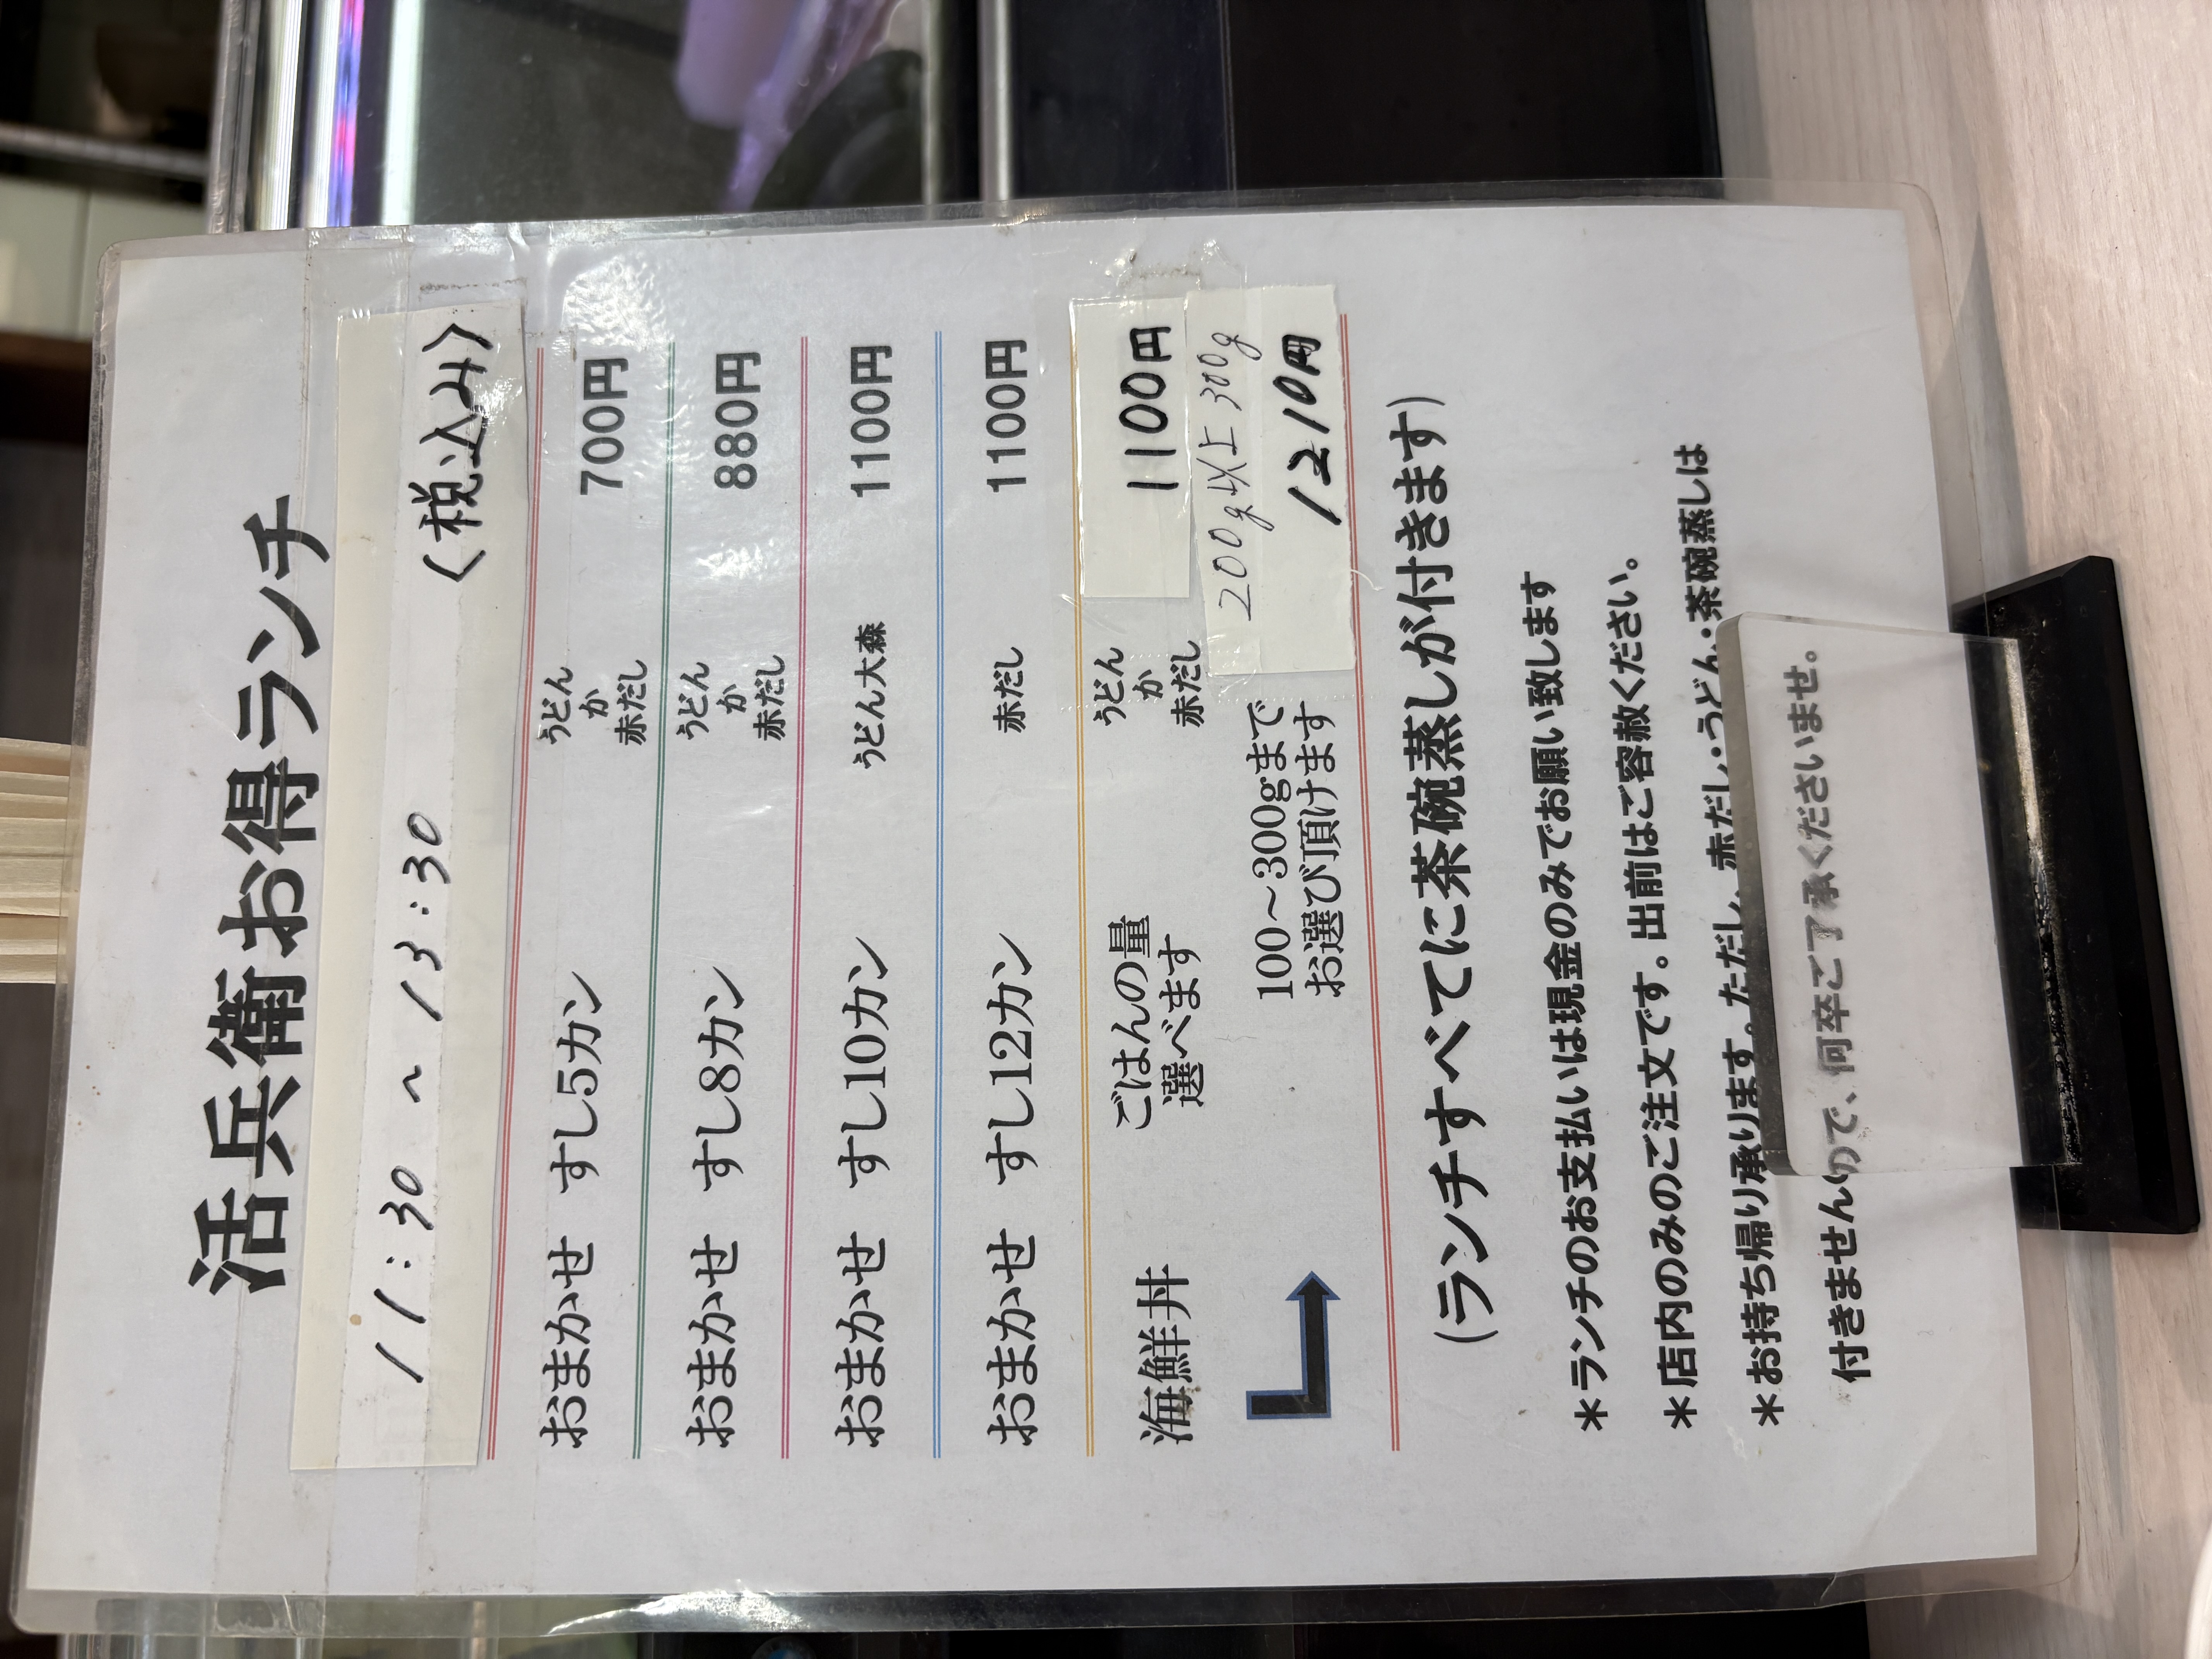 活兵衛お得ランチ
11:30～13:30 〈税込み〉
おまかせ すし5カン うどんか赤だし 700円
おまかせ すし8カン うどんか赤だし 880円
おまかせ すし10カン うどん大森 1100円
おまかせ すし12カン 赤だし 1100円
海鮮丼 ごはんの量選べます うどんか赤だし 1100円
200g以上300g
100～300gまで
お選び頂けます
1210円
(ランチすべてに茶碗蒸しが付きます)
＊ランチのお支払いは現金のみでお願い致します
＊店内のみのご注文です。出前はご容赦ください。
＊お持ち帰り承ります。ただし、赤だし・うどん・茶碗蒸しは
付きませんので、何卒ご了承くださいませ。